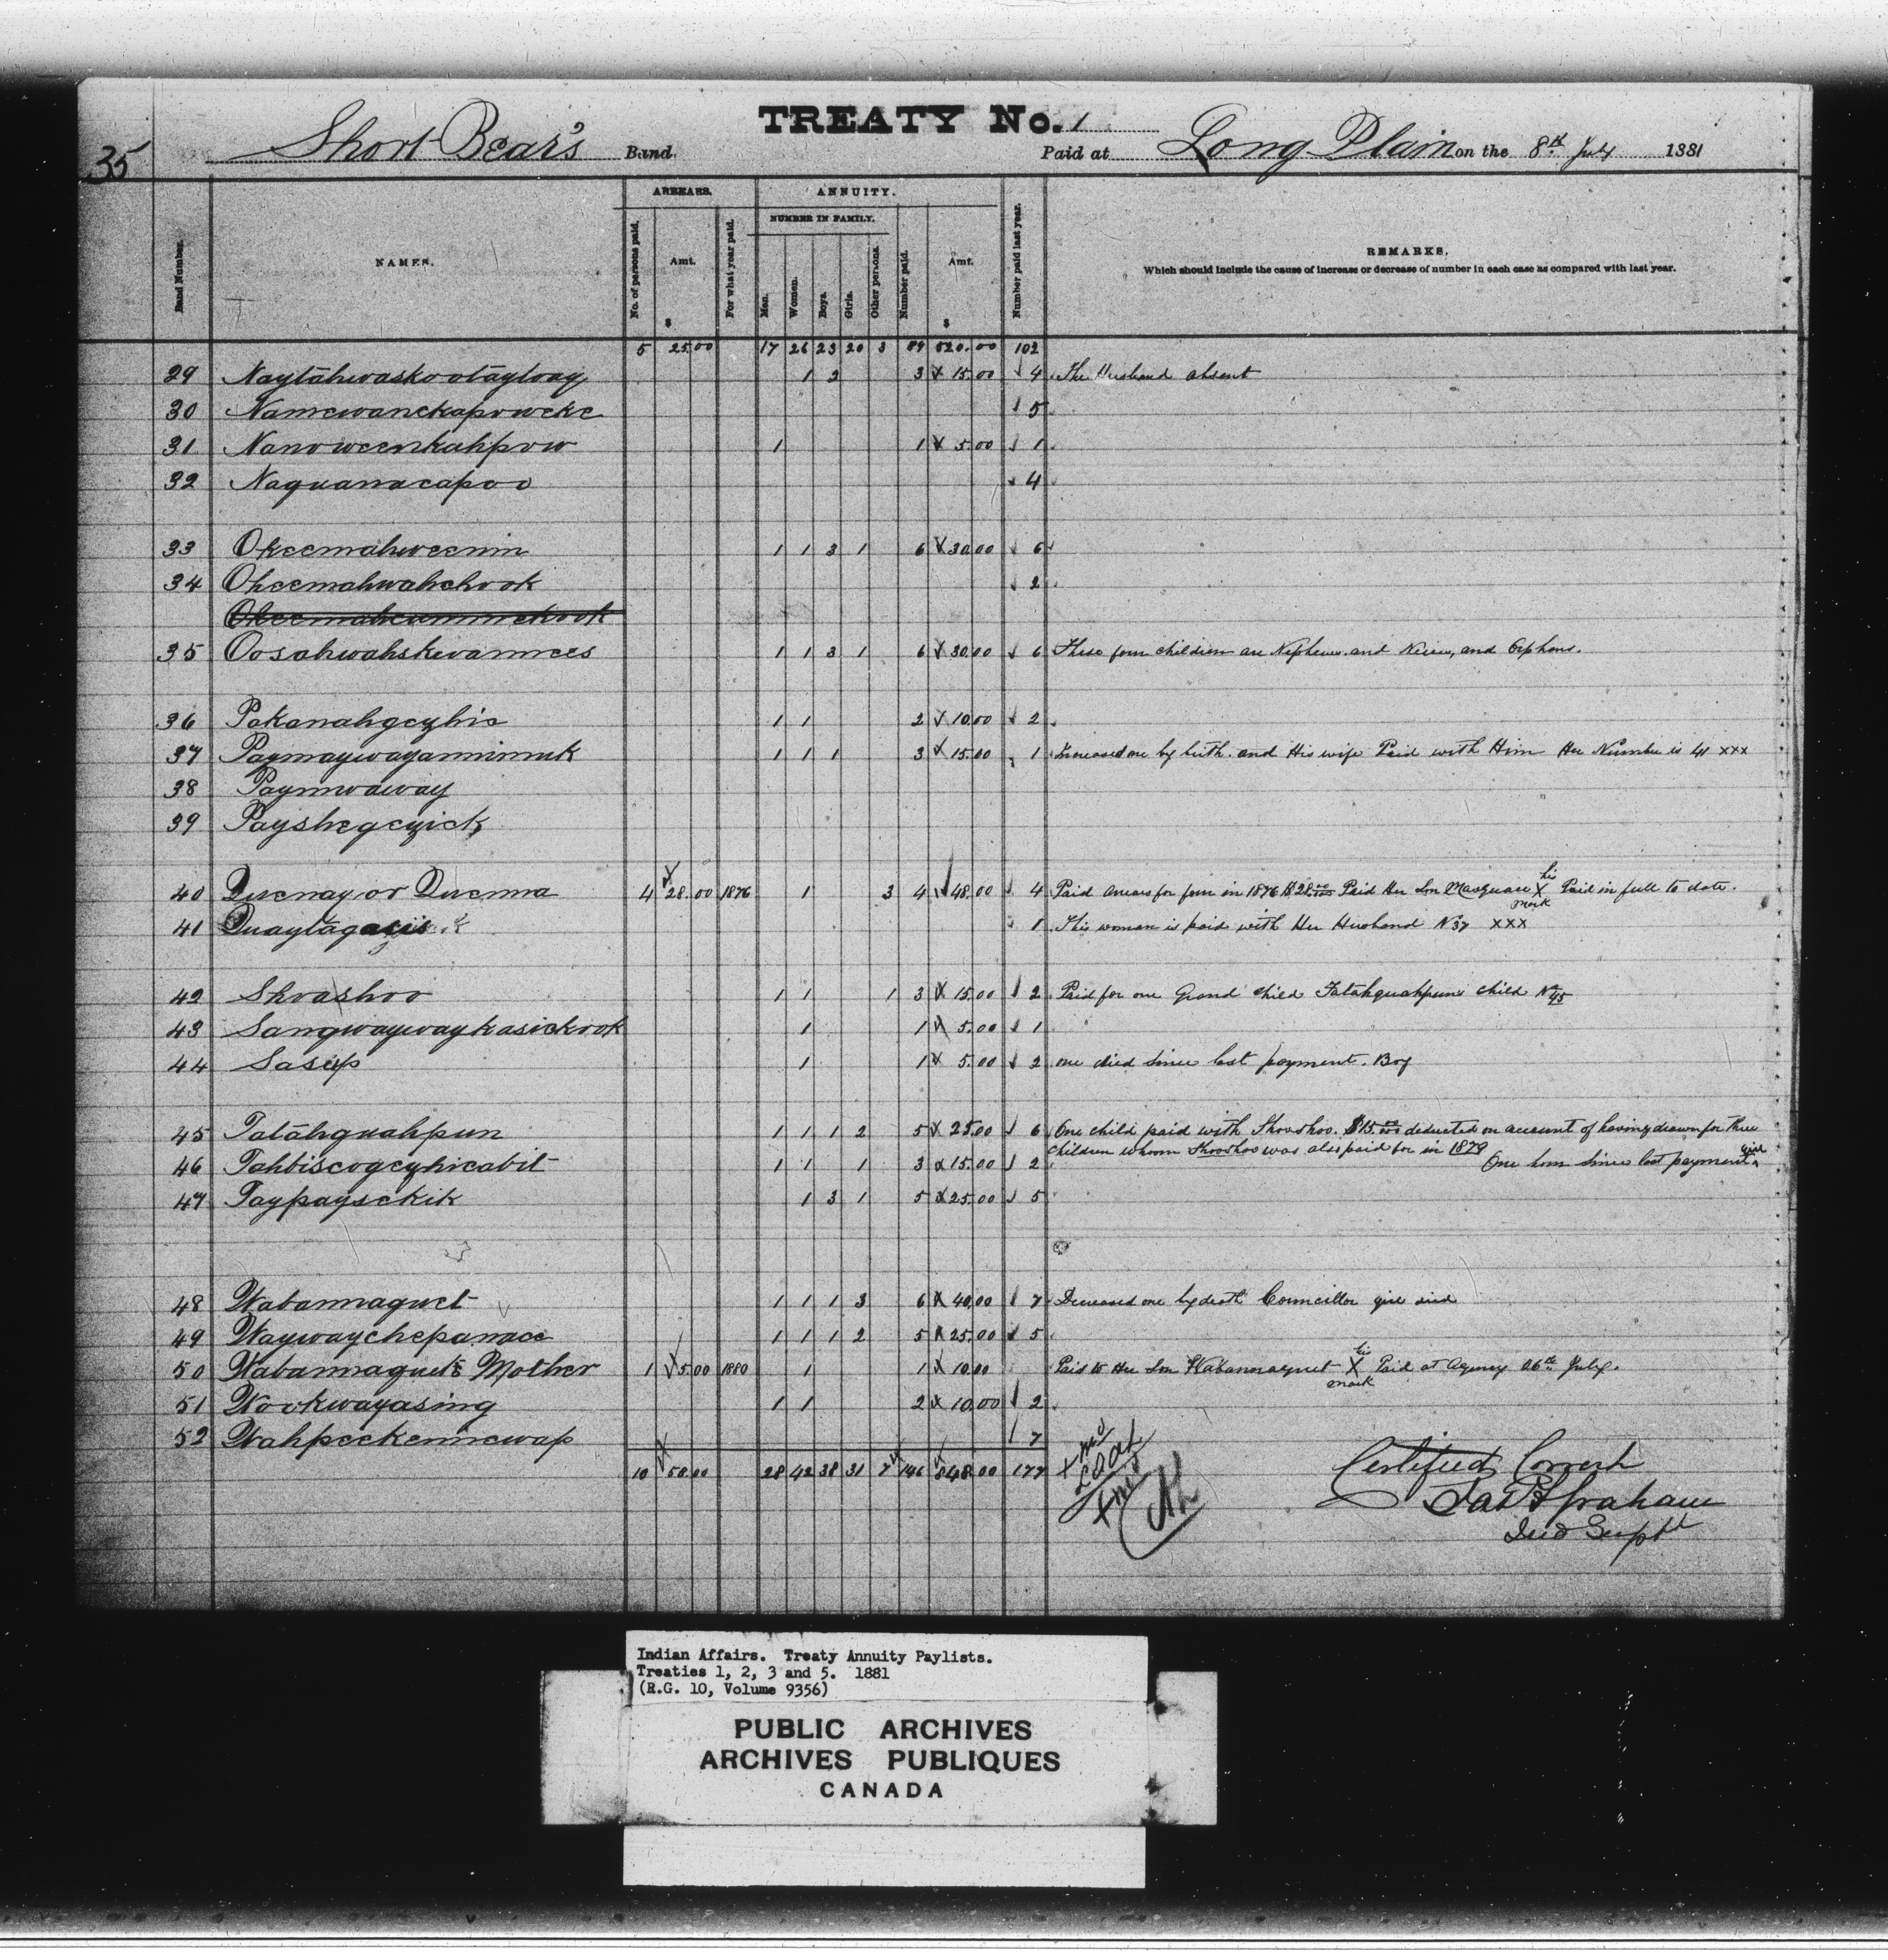 TREATY No. 1
35 Short Bear's Band. Paid at Long Plain on the 8th July 1881
Band Number. NAMES. ARREARS. No. of persons paid. Amt. $ For what year paid. ANNUITY. NUMBER IN FAMILY. Men. Women. Boys. Girls. Other persons. Number paid. Amt. $ Number paid last year. REMARKS.
Which should include the cause of increase or decrease of number in each case as compared with last year.
5 25.00 17 26 23 20 3 89 520.00 102
29 Naytahwaskootayway 1 2 3 15.00 4 The Husband absent
30 Namewanekapoweke 5
31 Nanoweenkahpow 1 1 5.00 1
32 Naquanacapoo 4
33 Okeemahweenin 1 1 3 1 6 30.00 6
34 Okeemahwahchook 2
35 Oosahwahskevannees 1 1 3 1 6 30.00 6 These four children are Nephews and Nieces, and Orphans.
36 Pakanahgezhic 1 1 2 10.00 2
37 Paymaywayanninnuk 1 1 1 3 15.00 1 Increased one by birth. and His wife Paid with Him Her Number is 41 xxx
38 Paymwaway
39 Payshegezick
40 Quenay or Quenna 4 28.00 1876 1 3 4 48.00 4 Paid arrears for four in 1876 $28.00 Paid Her Son Masquare his X mark Paid in full to date.
41 1 This woman is paid with Her Husband No 37 xxx
42 Shoashoo 1 1 1 3 15.00 2 Paid for one Grand child Tatahquahpuns child No 45
43 Sangwaywaykasickook 1 1 5.00 1
44 Sasup 1 1 5.00 2 one died since last payment. Boy
45 Tatahquahpun 1 1 1 2 5 25.00 6 One child paid with Shooshoo. $15.00 deducted on account of having drawn for three
children whom Shooshoo was also paid for in 1879
46 Tahbiscogezhicabit 1 1 1 3 15.00 2 One born since last payment girl
47 Taypaysekik 1 3 1 5 25.00 5
48 Wabannaquet 1 1 1 3 6 40.00 7 Decreased one by death Councillor girl died
49 Waywaychepanace 1 1 1 2 5 25.00 5
50 Wabannaquet's Mother 1 5.00 1880 1 1 10.00 Paid to Her Son Wabannaquet his X mark Paid at Agency 26th July.
51 Wookwayasing 1 1 2 10.00 2
52 Wahpeekeninewap 7
10 58.00 28 42 38 31 7 146 848.00 177
Certified Correct
Jas F Graham
Ind Supt
Indian Affairs. Treaty Annuity Paylists.
Treaties 1, 2, 3 and 5. 1881
(R.G. 10, Volume 9356)
PUBLIC ARCHIVES
ARCHIVES PUBLIQUES
CANADA